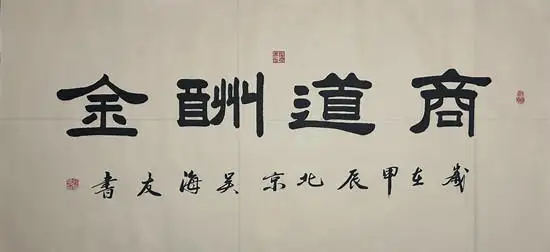 商道酬金
岁在甲辰北京吴海友书